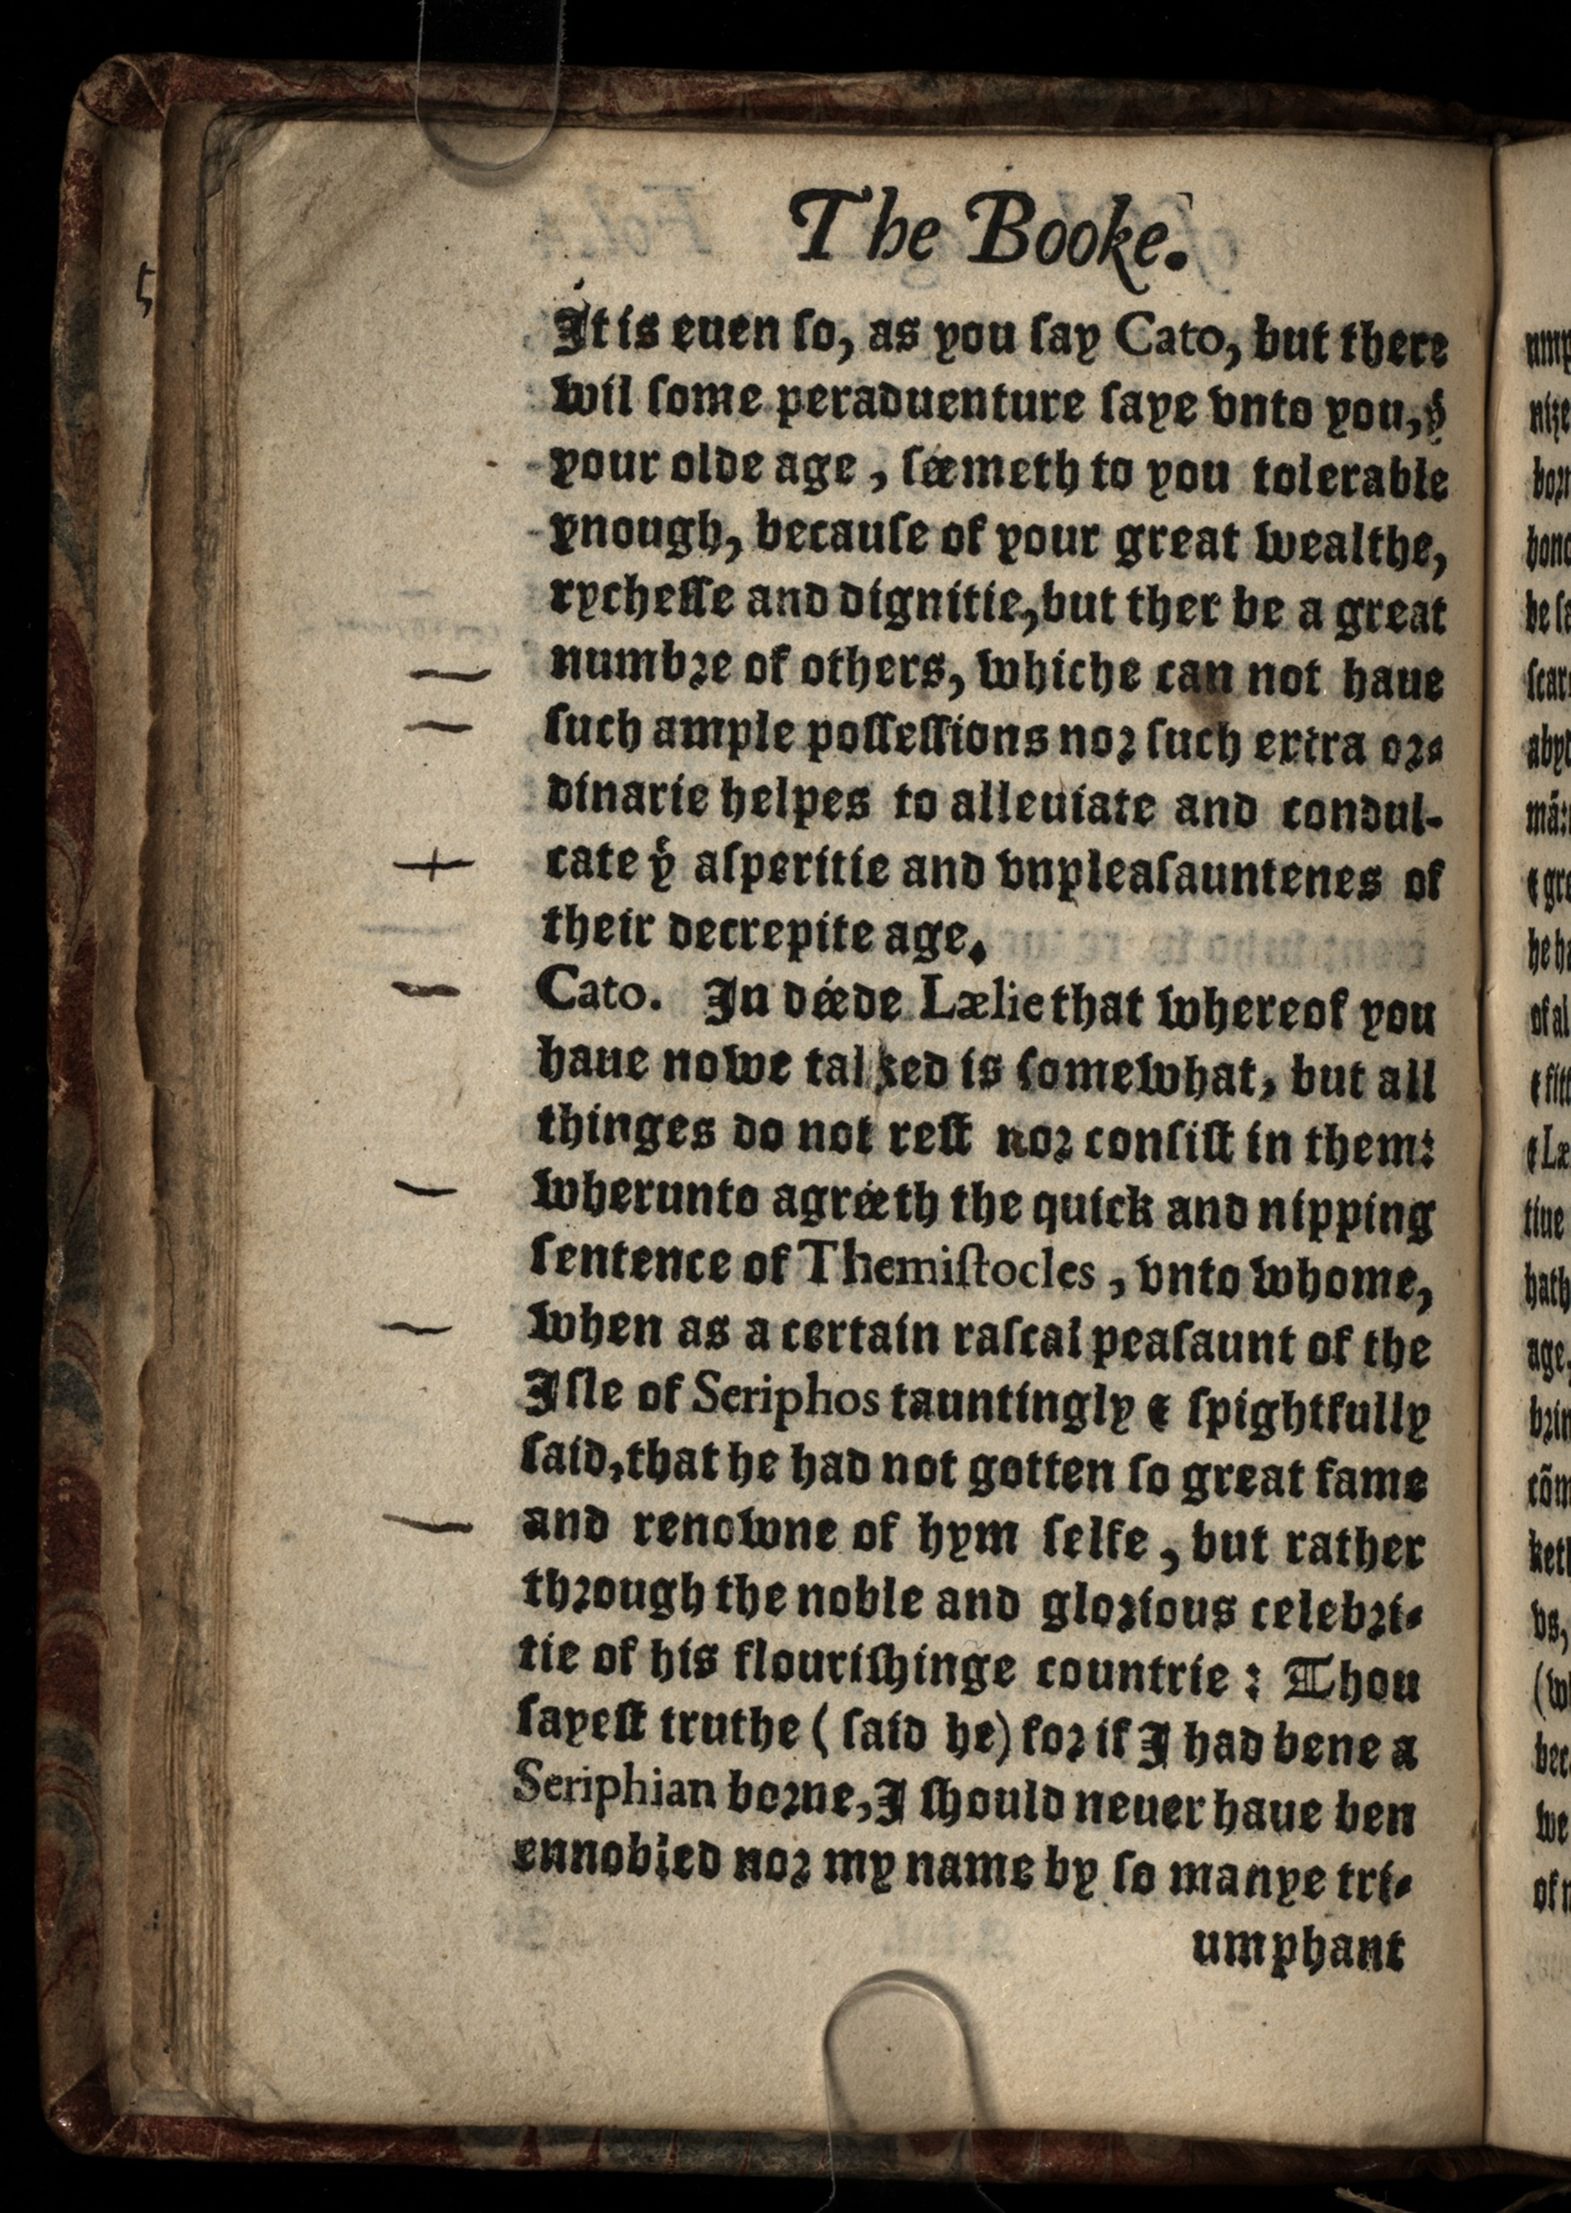 The Booke.
It is euen ſo, as you ſay Cato, but there
wil ſome peraduenture ſaye vnto you, yͭ
your olde age, ſéemeth to you tolerable
ynough, becauſe of your great wealthe,
rycheſſe and dignitie, but ther be a great
numbꝛe of others, whiche can not haue
ſuch ample poſſeſſions noꝛ ſuch extra oꝛ⸗
dinarie helpes to alleuiate and condul-
cate yͤ aſperitie and vnpleaſauntenes of
their decrepite age.
Cato. In déede Lælie that whereof you
haue nowe talked is ſomewhat, but all
thinges do not reſt noꝛ conſiſt in them:
wherunto agréeth the quick and nipping
ſentence of Themiſtocles, vnto whome,
when as a certain raſcal peaſaunt of the
Iſle of Seriphos tauntingly & ſpightfully
ſaid, that he had not gotten ſo great fame
and renowne of hym ſelfe, but rather
thꝛough the noble and gloꝛious celebꝛi⸗
tie of his flouriſhinge countrie: Thou
ſayeſt truthe (ſaid he) foꝛ if I had bene a
Seriphian boꝛne, I ſhould neuer haue ben
ennobled noꝛ my name by ſo manye tri⸗
umphant